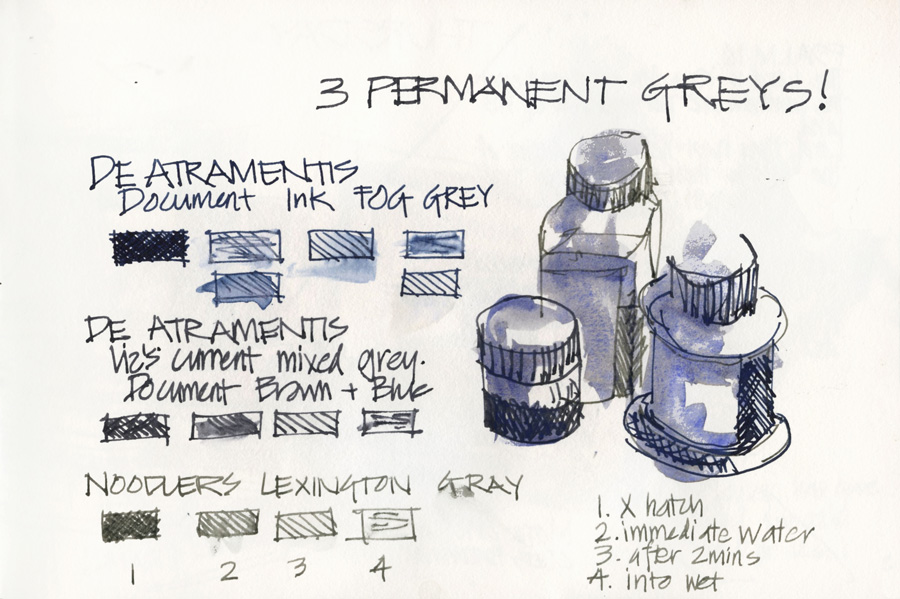 3 PERMANENT GREYS!
DE ATRAMENTIS
Document Ink FOG GREY
DE ATRAMENTIS
Liz's current mixed grey.
Document Brown + Blue
NOODLERS LEXINGTON GRAY
1 2 3 4
1. X hatch
2. immediate water
3. after 2mins
4. into wet